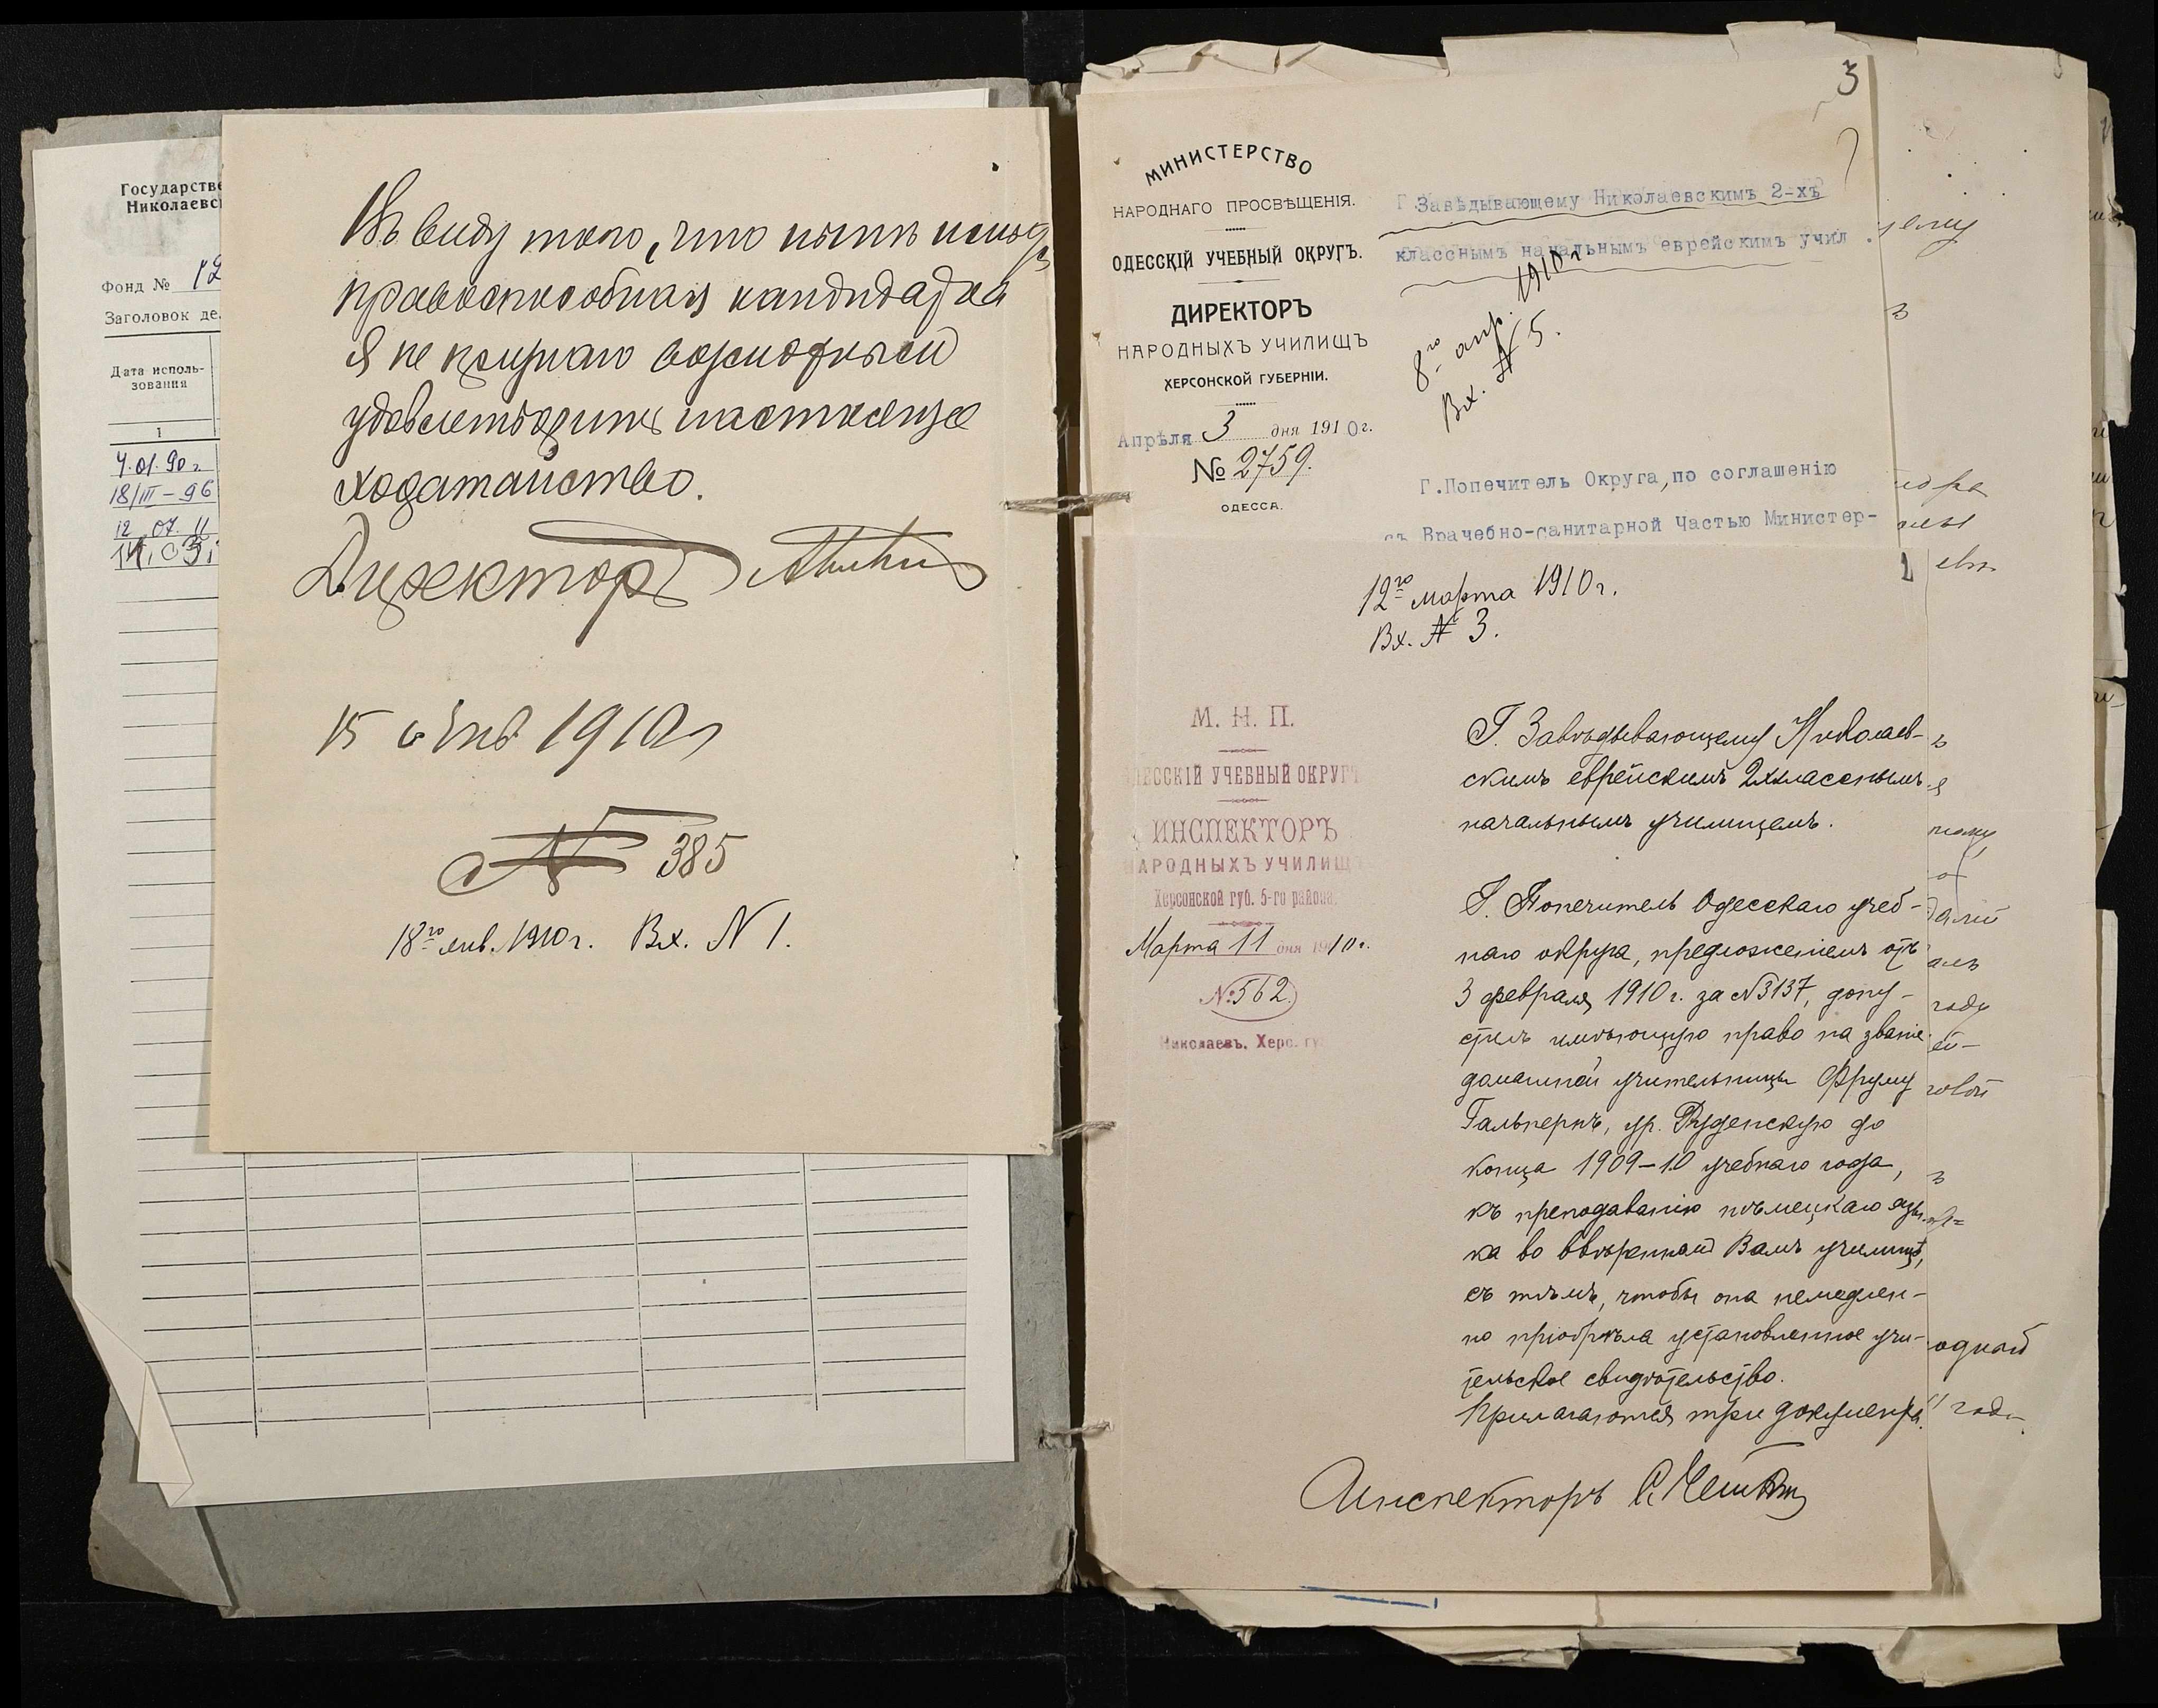 Государстве
Николаевс
Фонд № 12
Заголовок де
Дата исполь-
зования
1
4.01.90 г.
18/III – 96
12 07. 11
14.03.
Въ виду того, что нынѣ
правоспособная кандидатка
я не признаю возможнымъ
удовлетворить настоящее
ходатайство.
Директоръ
15 янв 1910 г
№ 385
18го янв. 1910 г. Вх. N 1.
3
МИНИСТЕРСТВО
НАРОДНАГО ПРОСВѢЩЕНІЯ.
ОДЕССКІЙ УЧЕБНЫЙ ОКРУГЪ.
ДИРЕКТОРЪ
НАРОДНЫХЪ УЧИЛИЩЪ
ХЕРСОНСКОЙ ГУБЕРНІИ.
Апрѣля 3 дня 1910 г.
№ 2759.
ОДЕССА.
Г. Завѣдывающему Николаевскимъ 2-хъ
класснымъ начальнымъ еврейскимъ учил.
8го апр. 1910 г
Вх. № 5.
Г.Попечитель Округа,по соглашенію
съ Врачебно-санитарной Частью Министер-
12го марта 1910 г.
Вх. № 3.
М. Н. П.
ОДЕССКІЙ УЧЕБНЫЙ ОКРУГЪ
ИНСПЕКТОРЪ
НАРОДНЫХЪ УЧИЛИЩ
Херсонской губ. 5-го района.
Марта 11 дня 1910 г.
№ 562.
Николаевъ, Херс. гу
Г. Завѣдывающему Николаев-
скимъ еврейскимъ 2хкласснымъ
начальнымъ училищемъ.
Г. Попечитель Одесскаго учеб-
наго округа, предложеніемъ отъ
3 февраля 1910 г. за №3137, допу-
стилъ имѣющую право на званіе
домашней учительницы Фруму
Гальпернъ, ур. Руденскую до
конца 1909–10 учебнаго года,
къ преподаванію нѣмецкаго язы-
ка во ввѣренномъ Вамъ училищѣ,
съ тѣмъ, чтобы она немедлен-
но пріобрѣла установленное учи-
тельское свидѣтельство.
Прилагаются три документа.
Инспекторъ